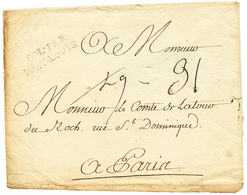 COL. PAR
PORT-LOUIS
A Monsieur
29 - 31
Monsieur le Comte de Latour
du Roch, rue St. Dominique
A Paris